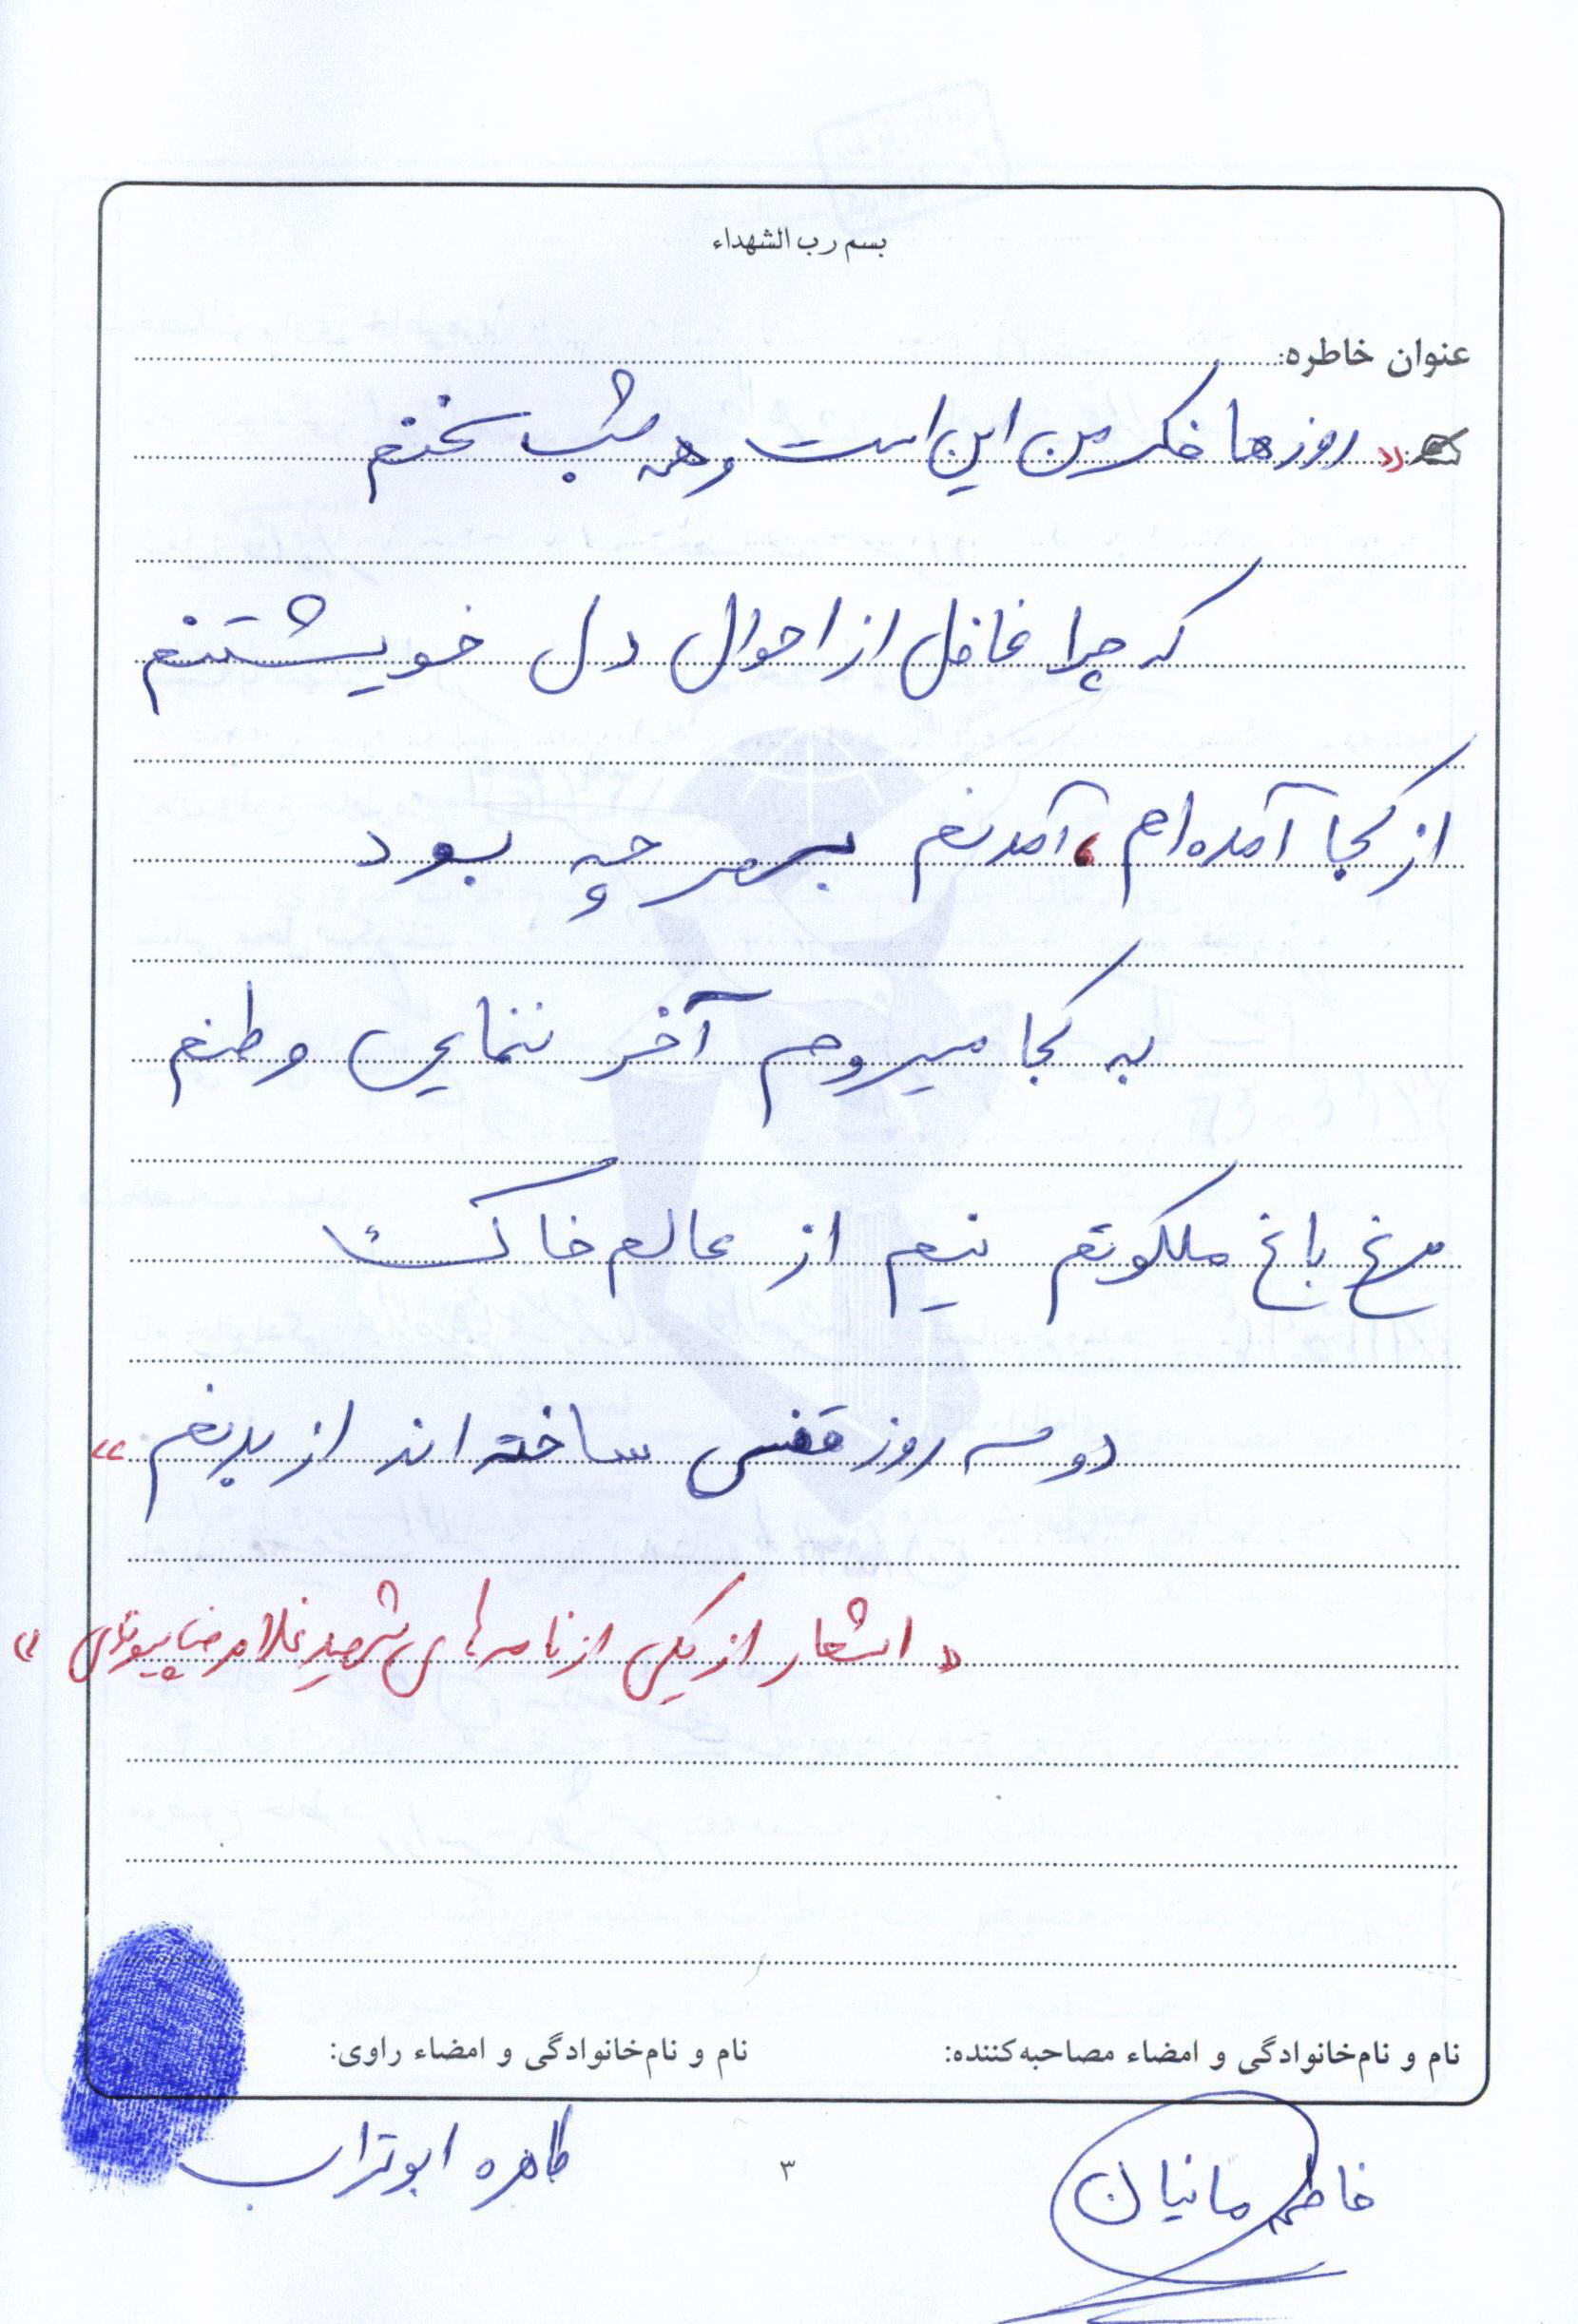 بسم رب الشهداء
عنوان خاطره:
« روزها فکر من این است و همه شب سخنم
که چرا غافل از احوال دل خویشتنم
از کجا آمده‌ام، آمدنم بهر چه بود
به کجا میروم آخر ننمایی وطنم
مرغ باغ ملکوتم نیم از عالم خاک
دو سه روز قفسی ساخته اند از بدنم »
« اشعار از یکی از نامه های شهید غلامرضا »
نام و نام‌خانوادگی و امضاء مصاحبه‌کننده: نام و نام‌خانوادگی و امضاء راوی:
فاطمه مانیان ۳ طاهره ابوتراب